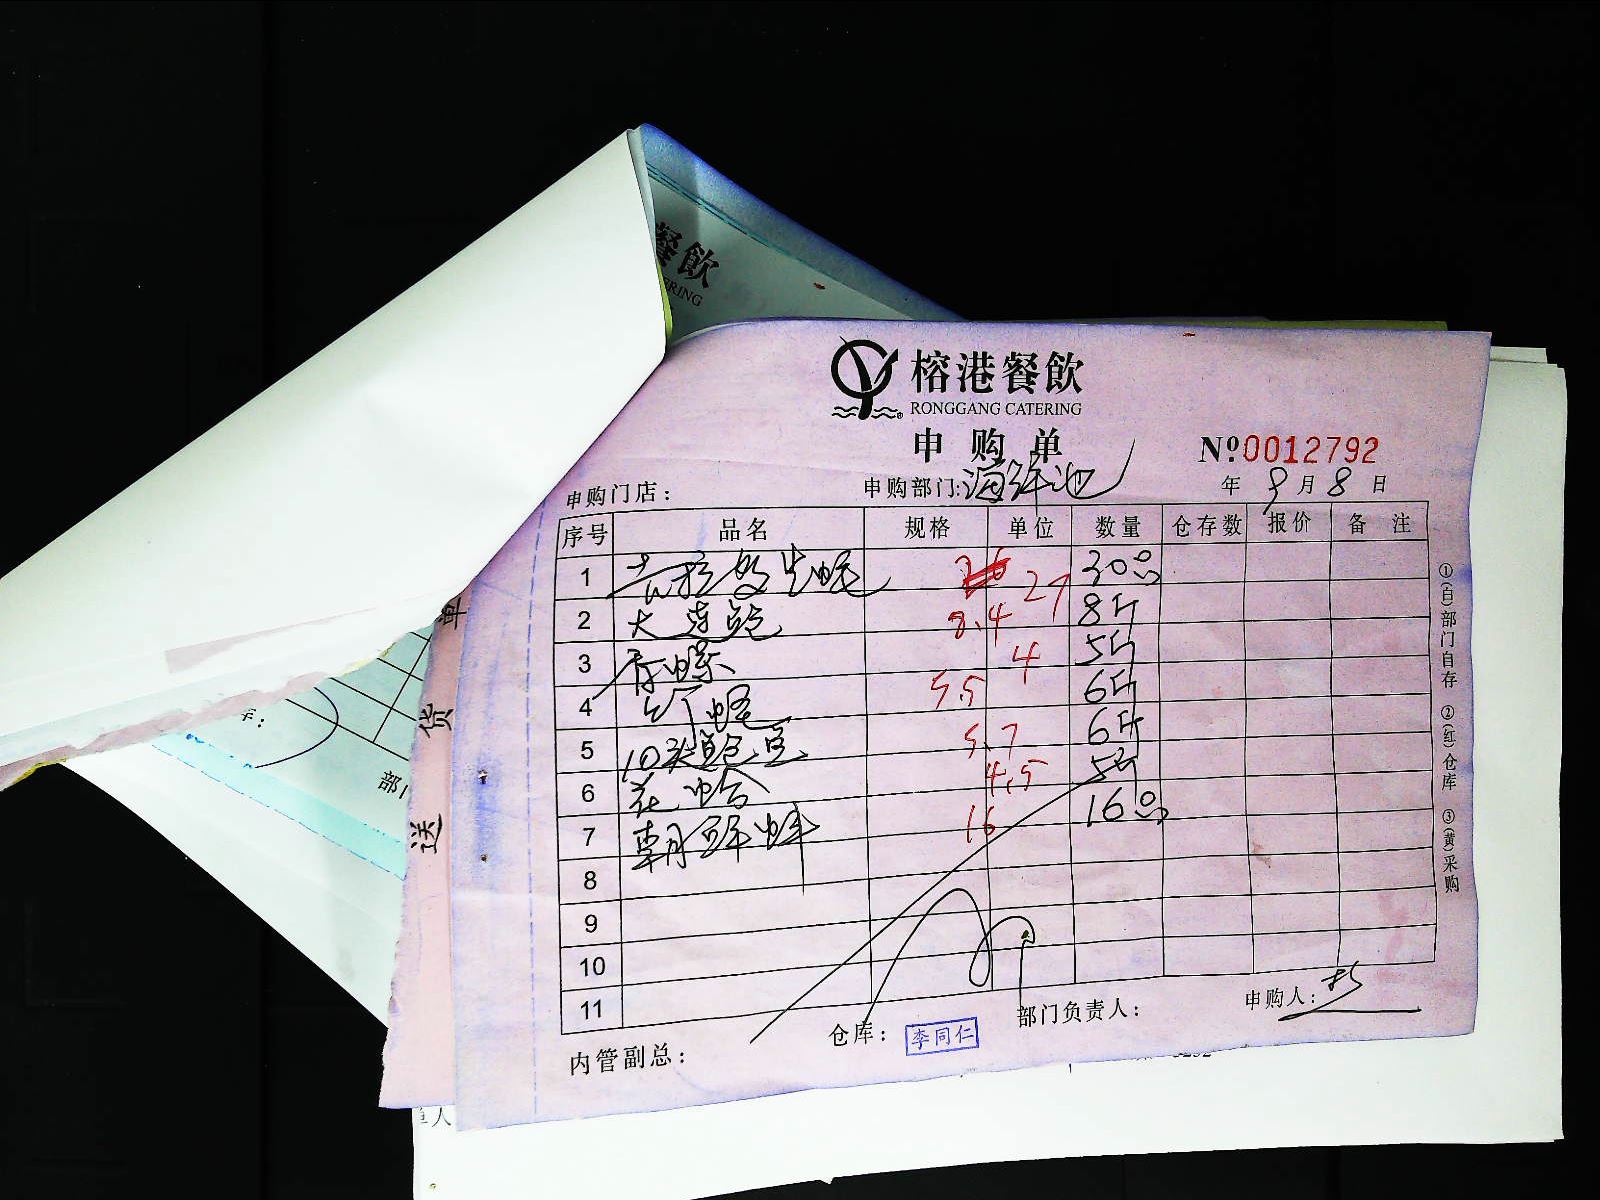 餐飲
ERING
榕港餐飲
RONGGANG CATERING
申购单
№0012792
申购门店：
申购部门:海鲜池
年 9月8日
序号 品名 规格 单位 数量 仓存数 报价 备注
1 吉拉多生蚝 27 30只
2 大连鲍 8.4 8斤
3 香螺 4 5斤
4 5.5 6斤
5 10头鲍鱼 5.7 6斤
6 花蛤 4.5 5斤
7 朝鲜蚌 16 16只
8
9
10
11
内管副总：
仓库：李同仁
部门负责人：
申购人：
①(白)部门自存 ②(红)仓库 ③(黄)采购
送货单
部门